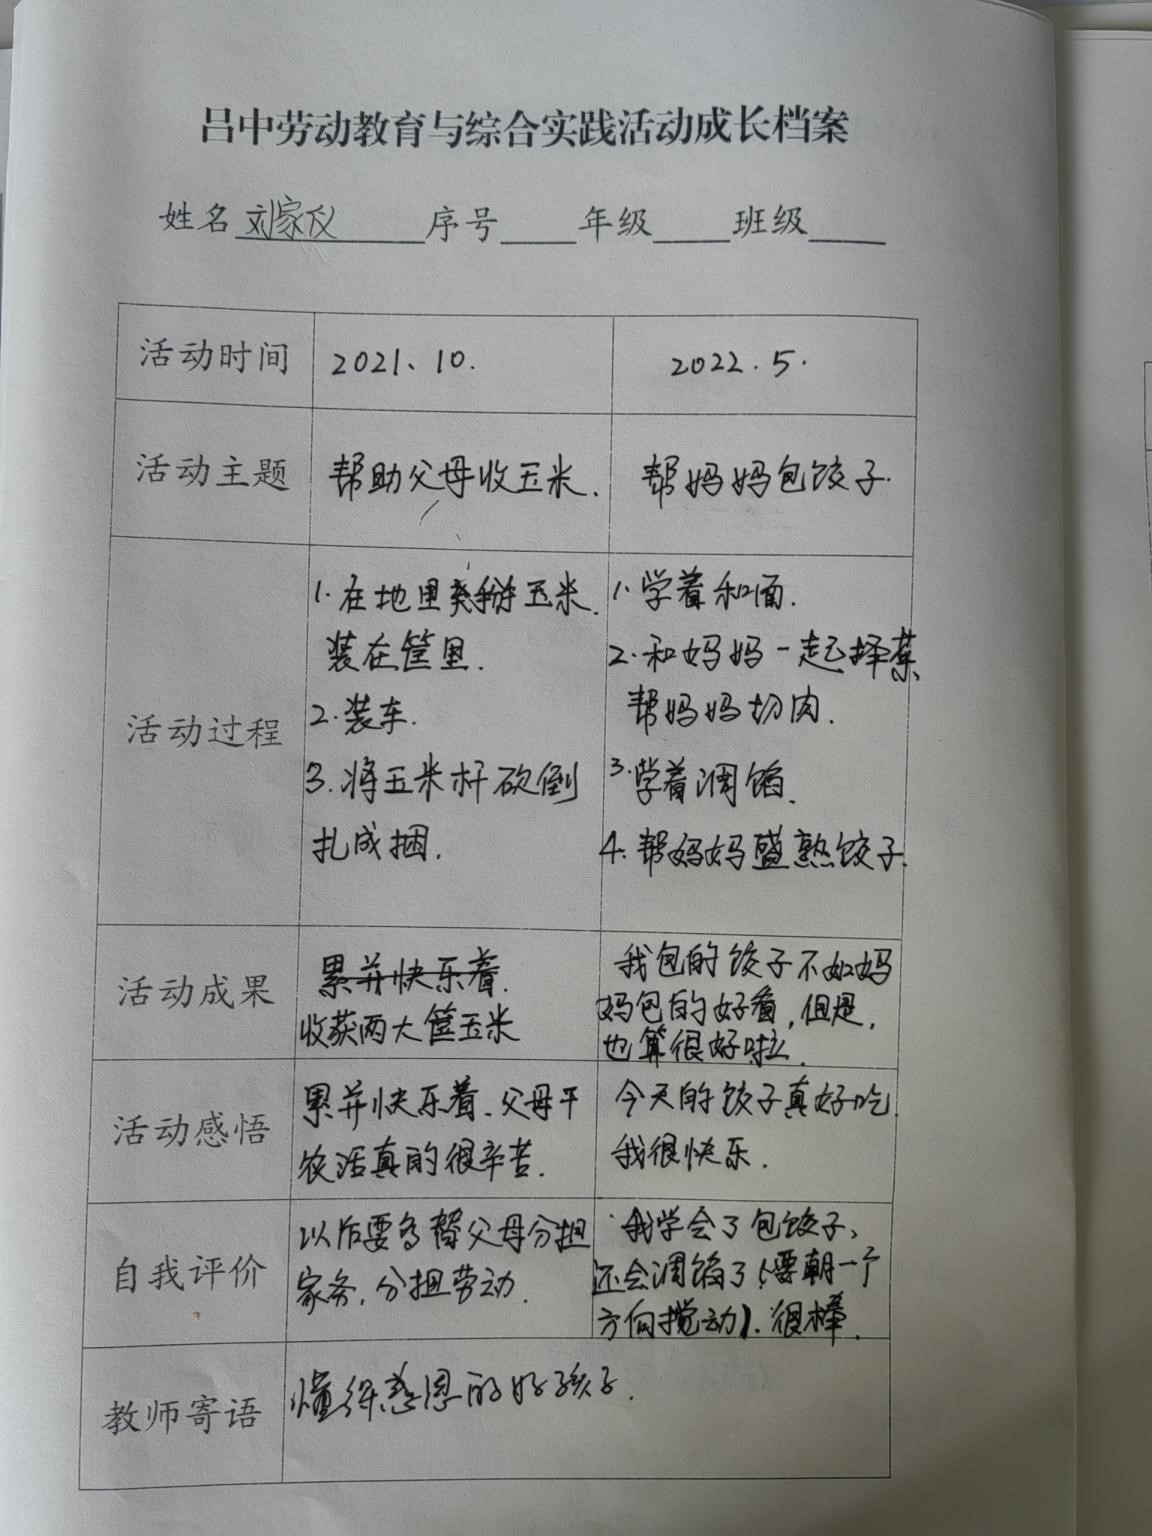 吕中劳动教育与综合实践活动成长档案
姓名 刘家仪 序号 年级 班级
活动时间
2021、10.
2022.5.
活动主题
帮助父母收玉米.
帮妈妈包饺子.
活动过程
1.在地里掰玉米.
装在筐里.
2.装车.
3.将玉米杆砍倒
扎成捆.
1.学着和面.
2.和妈妈一起择菜
帮妈妈切肉.
3.学着调馅.
4.帮妈妈盛熟饺子.
活动成果
累并快乐着.
收获两大筐玉米
我包的饺子不如妈
妈包的好看,但是,
也算很好啦.
活动感悟
累并快乐着.父母干
农活真的很辛苦.
今天的饺子真好吃.
我很快乐.
自我评价
以后要多替父母分担
家务,分担劳动.
我学会了包饺子、
还会调馅了(要朝一个
方向搅动).很棒.
教师寄语
懂得感恩的好孩子.